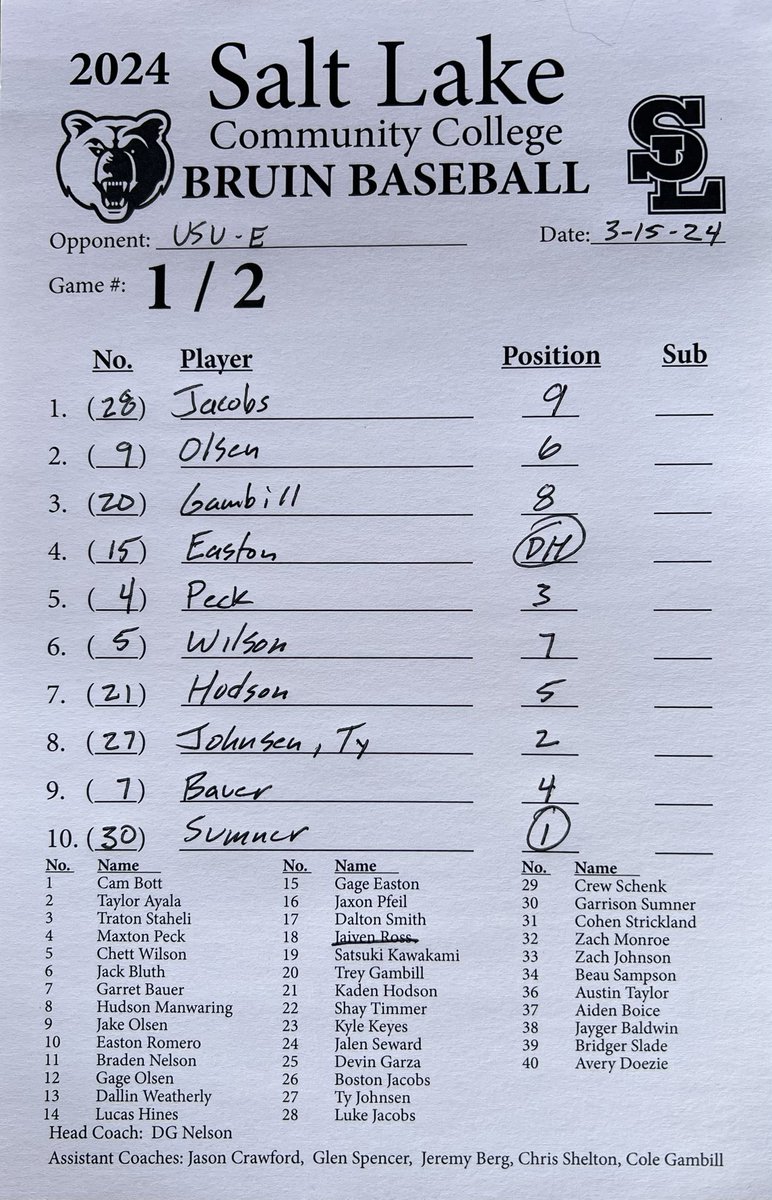 2024 Salt Lake
Community College
BRUIN BASEBALL
SL
Opponent: USU-E Date: 3-15-24
Game #: 1 / 2
No. Player Position Sub
1. (28) Jacobs 9
2. (9) Olsen 6
3. (20) Gambill 8
4. (15) Easton DH
5. (4) Peck 3
6. (5) Wilson 7
7. (21) Hodson 5
8. (27) Johnsen, Ty 2
9. (7) Bauer 4
10. (30) Sumner 1
No. Name
1 Cam Bott
2 Taylor Ayala
3 Traton Staheli
4 Maxton Peck
5 Chett Wilson
6 Jack Bluth
7 Garret Bauer
8 Hudson Manwaring
9 Jake Olsen
10 Easton Romero
11 Braden Nelson
12 Gage Olsen
13 Dallin Weatherly
14 Lucas Hines
No. Name
15 Gage Easton
16 Jaxon Pfeil
17 Dalton Smith
18 Jaiven Ross
19 Satsuki Kawakami
20 Trey Gambill
21 Kaden Hodson
22 Shay Timmer
23 Kyle Keyes
24 Jalen Seward
25 Devin Garza
26 Boston Jacobs
27 Ty Johnsen
28 Luke Jacobs
No. Name
29 Crew Schenk
30 Garrison Sumner
31 Cohen Strickland
32 Zach Monroe
33 Zach Johnson
34 Beau Sampson
36 Austin Taylor
37 Aiden Boice
38 Jayger Baldwin
39 Bridger Slade
40 Avery Doezie
Head Coach: DG Nelson
Assistant Coaches: Jason Crawford, Glen Spencer, Jeremy Berg, Chris Shelton, Cole Gambill